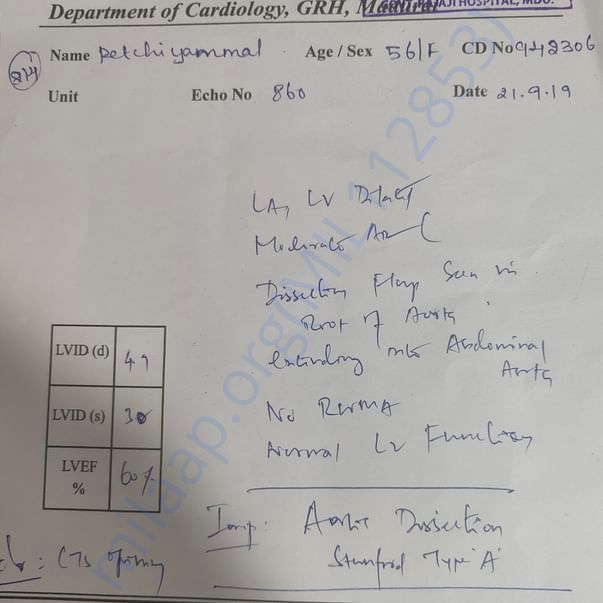 Department of Cardiology, GRH, Madurai
HOSPITAL, MDU.
Name Petchiyammal Age / Sex 56/F CD No 942306
Unit Echo No 860 Date 21.9.19
LA, LV Dilated
Moderate AR
Dissection Flap Seen in
Root of Aorta
extending into Abdominal
Aorta
No RWMA
Normal LV Function
LVID (d) 49
LVID (s) 30
LVEF % 60%
Imp: Aortic Dissection
Stanford Type 'A'
CTS opinion
milaap.org(MIL1128853)